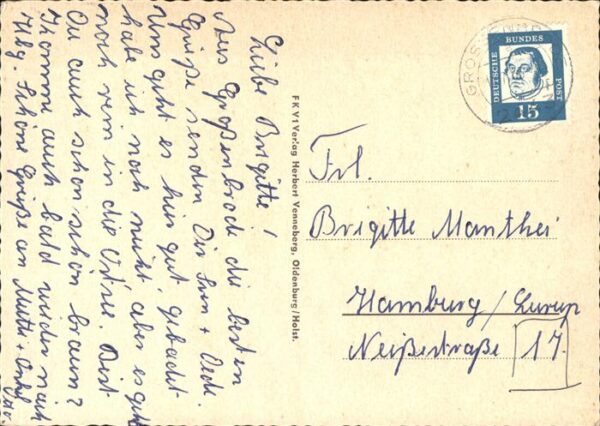 Liebe Brigitte!
Aus Großenbrode die besten
Grüße senden Dir Sven +
Uns geht es hier gut, gebadet
habe ich noch nicht aber es geht
noch rein in die Ostsee. Bist
Du auch schon schön braun?
Komme auch bald wieder nach
Hbg. Schöne Grüße an Mutti + Onkel
FKV1 Verlag Herbert Venneberg, Oldenburg/Holst.
GROS
DEUTSCHE BUNDES POST
15
Frl.
Brigitte Manthei
Hamburg / Lurup
Neißestraße 17